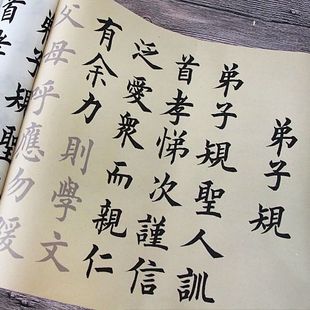 弟子規
弟子規聖人訓
首孝悌次謹信
泛愛衆而親仁
有余力則學文
父母呼應勿緩
子規聖